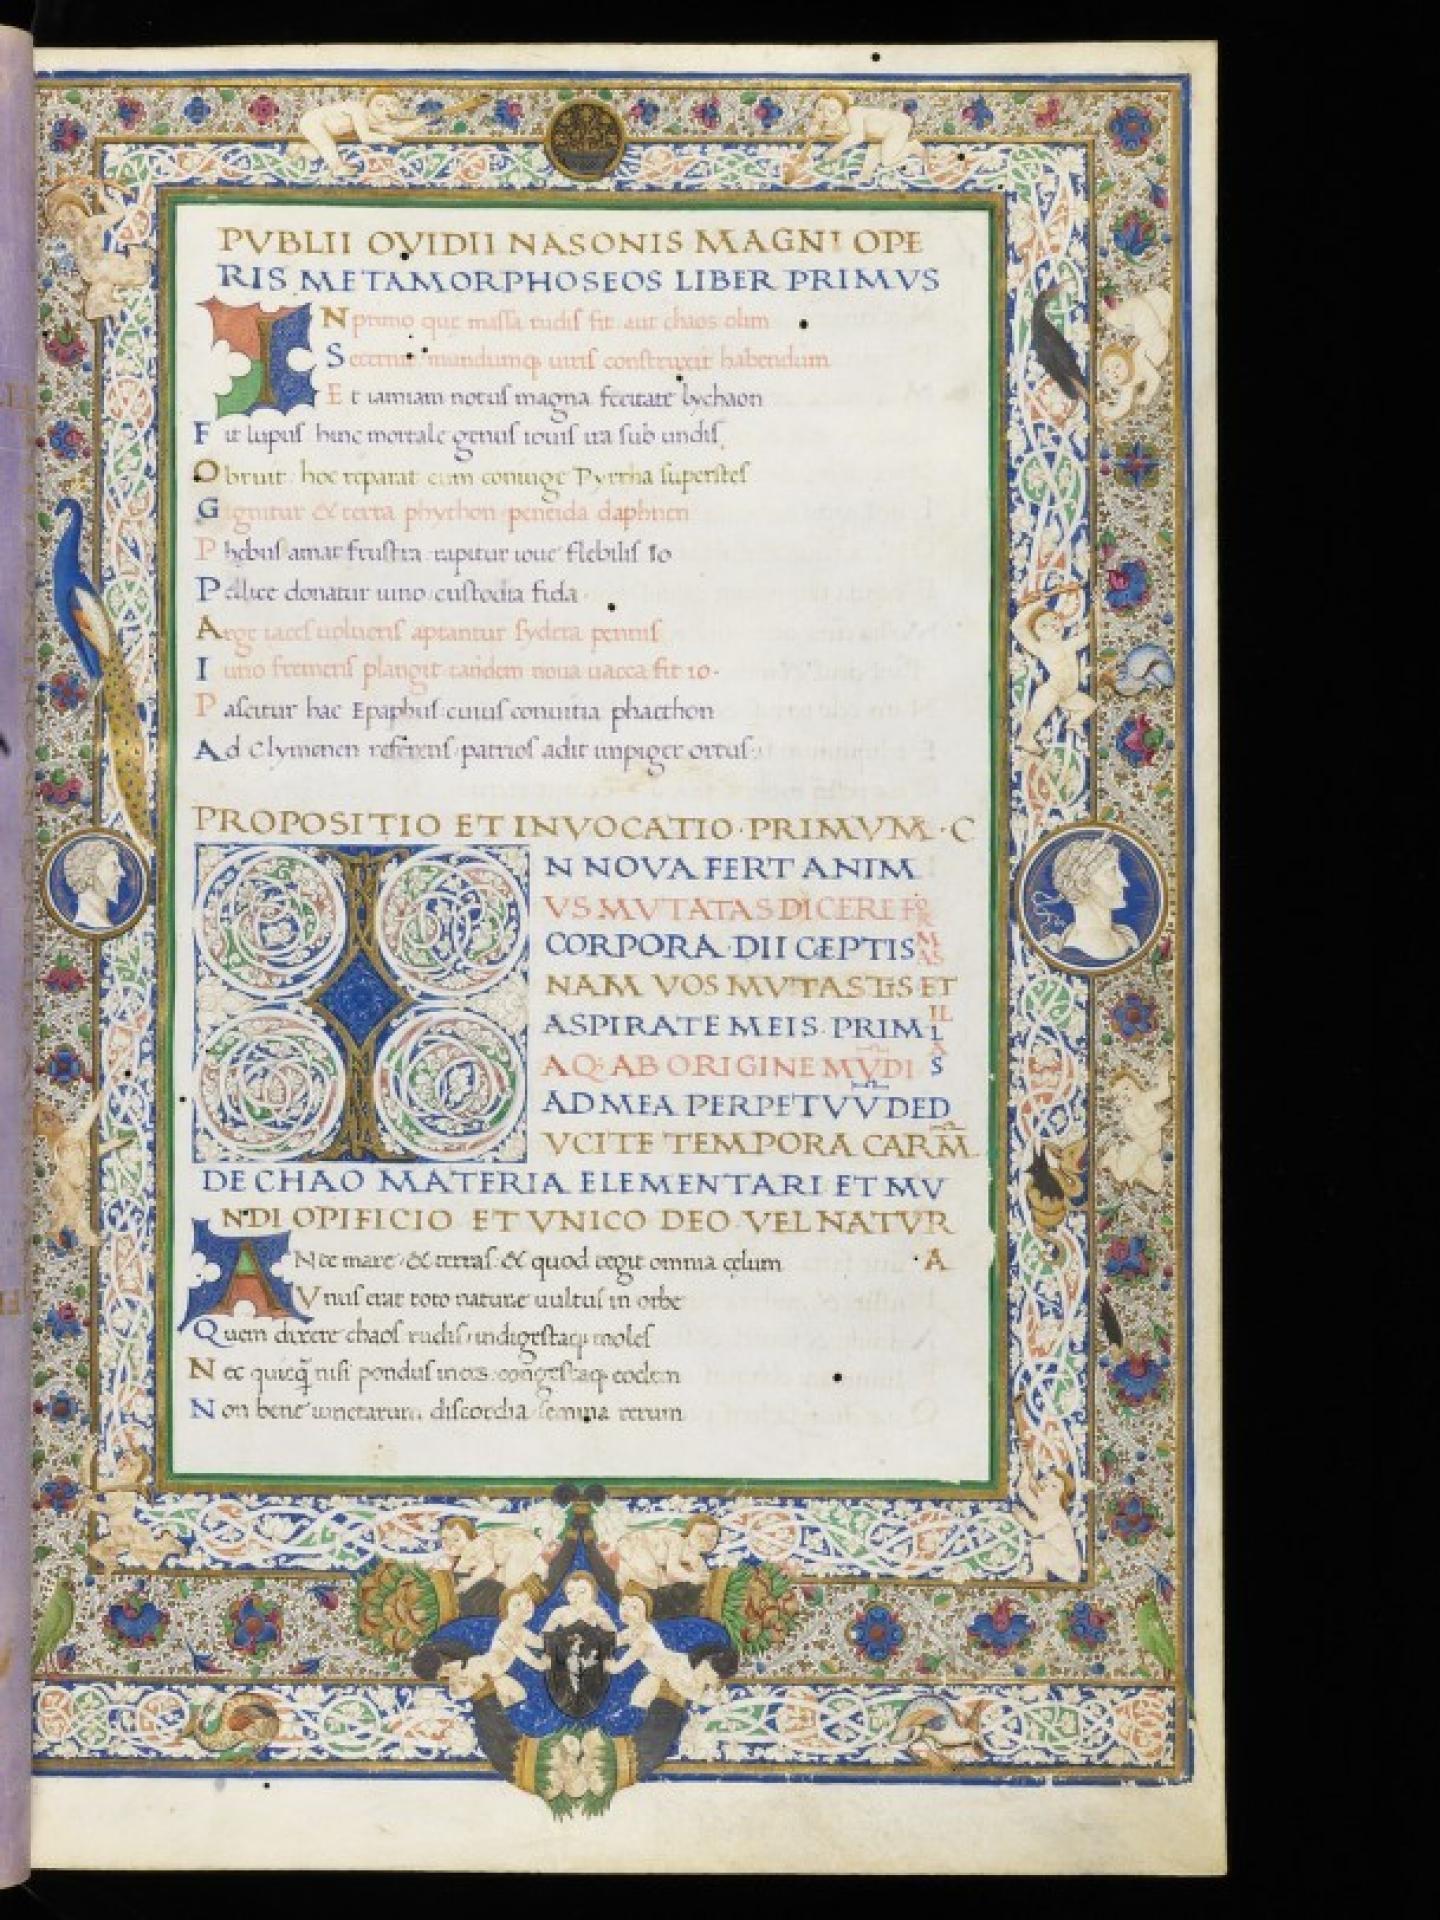 PVBLII OVIDII NASONIS MAGNI OPE
RIS METAMORPHOSEOS LIBER PRIMVS
IN primo que massa rudis fit aut chaos olim
Secernit mundumq; uiris construxit habendum
Et iamiam notus magna feritate lychaon
Fit lupus hinc mortale genus iouis ira sub undis
Obruit hoc reparat cum coniuge Pyrrha superstes
Gignitur & terra phython peneida daphnen
Phebus amat frustra rapitur ioue flebilis Io
Pellice donatur iuno custodia fida
Arge iaces uolucris aptantur sydera pennis
Iuno fremens plangit tandem noua uacca fit io.
Pascitur hac Epaphus cuius conuitia phaethon
Ad Clymenen referens patrios adit impiger ortus.
PROPOSITIO ET INVOCATIO·PRIMVM·C
IN NOVA FERT ANIM
VS MVTATAS DICERE FORMAS
CORPORA·DII CEPTIS
NAM VOS MVTASTIS ET ILLAS
ASPIRATE MEIS·PRIM
AQ· AB ORIGINE MVDI
AD MEA PERPETVV DED
VCITE TEMPORA CARM
DE CHAO MATERIA ELEMENTARI ET MV
NDI OPIFICIO ET VNICO DEO VEL NATVR
A
ANte mare & terras & quod tegit omnia cęlum
Vnus erat toto nature uultus in orbe
Quem dixere chaos rudis indigestaq; moles
Nec quicq̃ nisi pondus iners congestaq; eodem
Non bene iunctarum discordia semina rerum